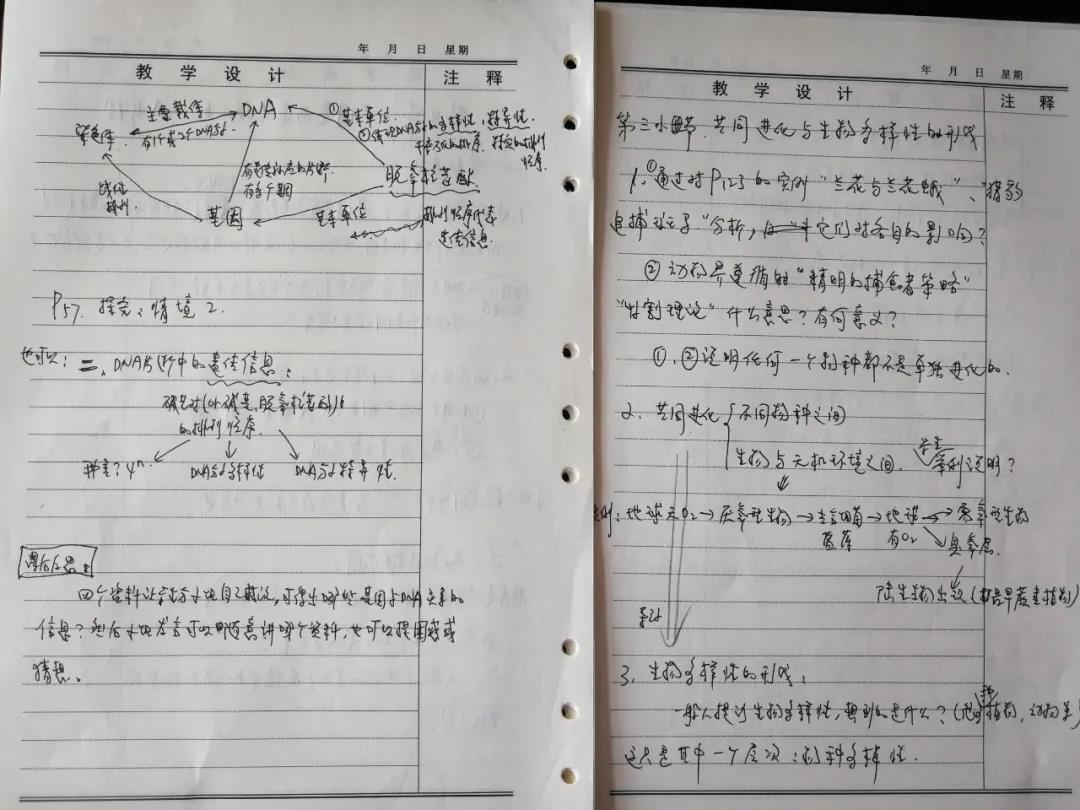 年 月 日 星期
教 学 设 计 注 释
主要载体 DNA ①基本单位
染色体 有1个或2个DNA分子. ②体现DNA分子的多样性、特异性.
千变万化的排列顺序. 特定的排列顺序
有遗传效应的片段
有多个基因
脱氧核苷酸
线性排列
基因 基本单位 排列顺序代表遗传信息.
P57. 探究、情境2.
也可以: 二、DNA片段中的遗传信息:
碱基对(or碱基、脱氧核苷酸)
的排列顺序.
种类? 4ⁿ. DNA分子多样性 DNA分子特异性.
课后反思:
四个资料让学生小组自己讨论, 可得出哪些基因与DNA关系的
信息? 然后小组发言可以随意讲哪个资料, 也可以提困惑或
猜想.
年 月 日 星期
教 学 设 计 注 释
第三小节. 共同进化与生物多样性的形成
1. ①通过对P123的实例"兰花与兰花蛾"、"猎豹
追捕斑羚子"分析, 它们对各自的影响?
②动物界遵循的"精明的捕食者策略"
"收割理论"什么意思? 有何意义?
①、②说明任何一个物种都不是单独进化的.
2. 共同进化 { 不同物种之间
生物与无机环境之间. 学生举例说明?
地球无O2→厌氧型生物→蓝藻→地球有O2→需氧型生物
臭氧层.
陆生生物出现(
3. 生物多样性的形成:
一般人提到生物多样性, 想到的是什么? (植物, 动物
这只是其中一个层次: 物种多样性.